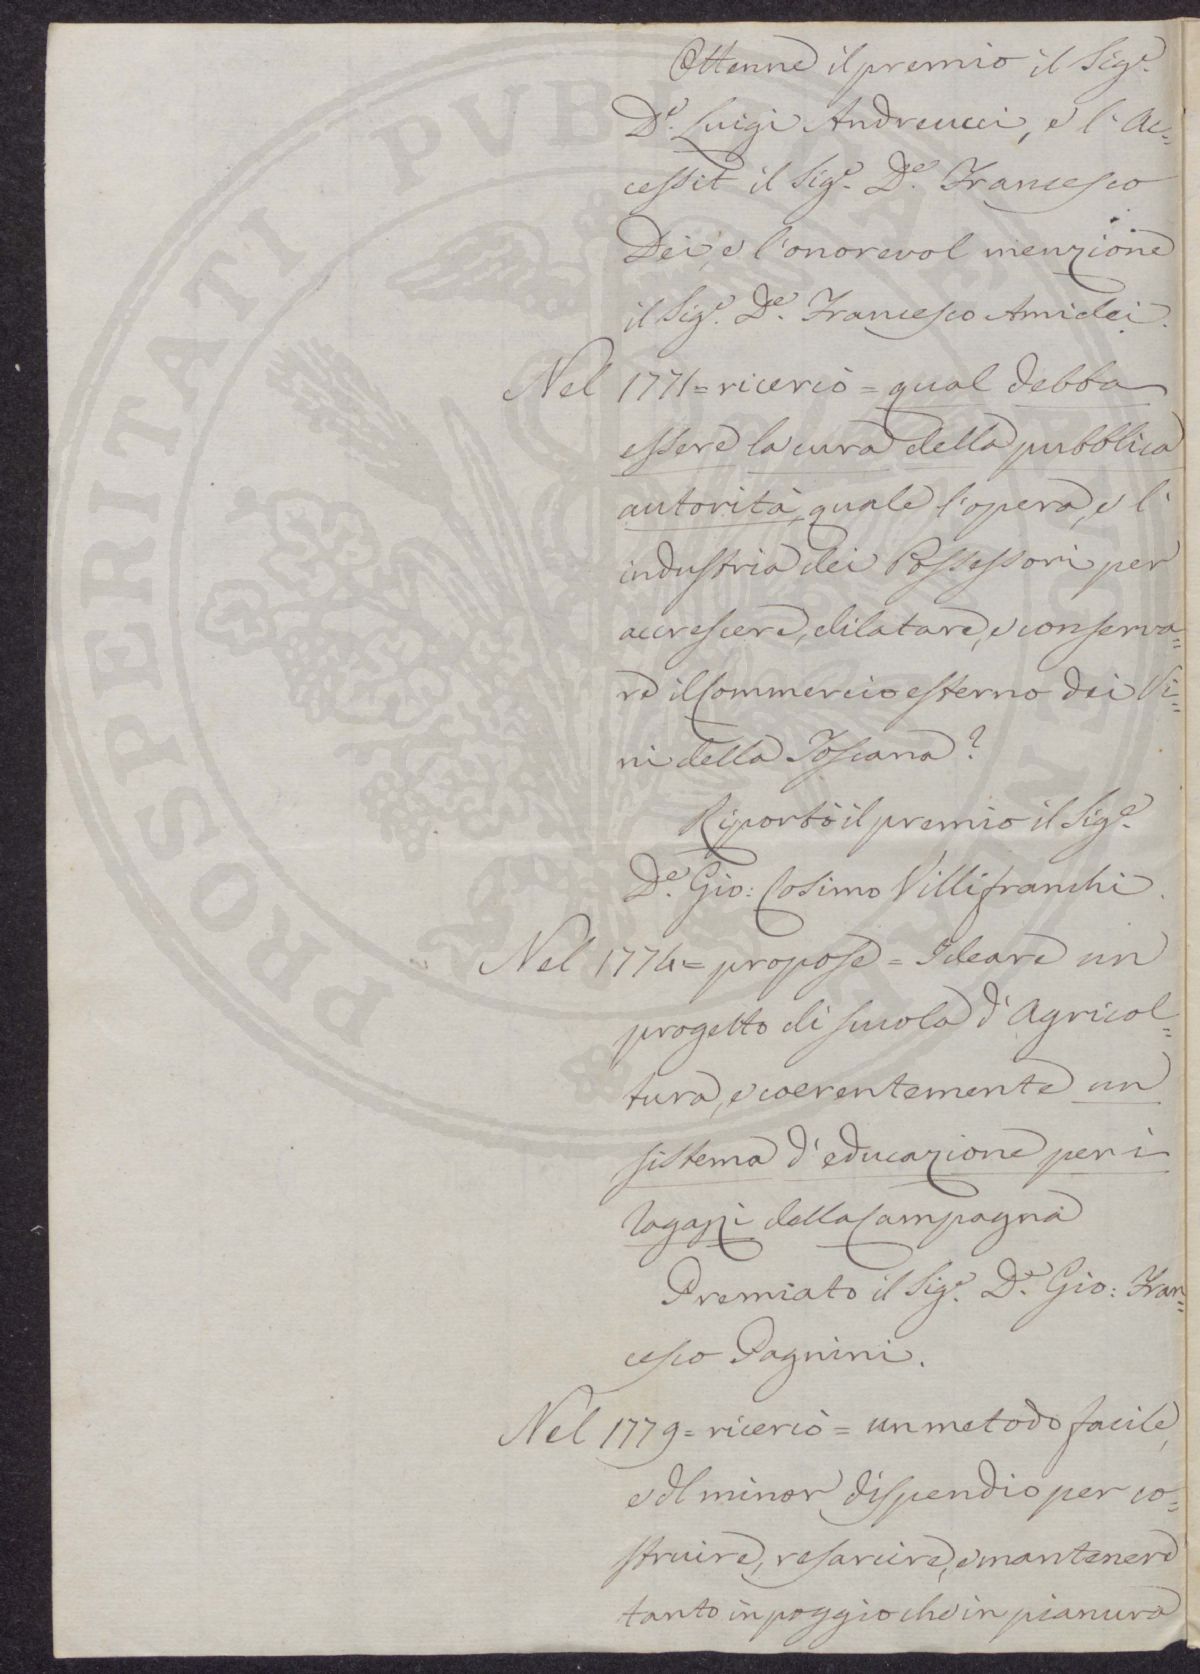 Ottenne il premio il Sig.e
D.e Luigi Andreucci, e l'Ac=
cessit il Sig.e D.e Francesco
Dei, e l'onorevol menzione
il Sig.e D.e Francesco Amidei.
Nel 1771 = ricercò = qual debba
essere la cura della pubblica
autorità, quale l'opera, e l'
industria dei Possessori per
accrescere, dilatare, e conserva=
re il Commercio esterno dei Vi=
ni della Toscana?
Riportò il premio il Sig.e
D.e Gio: Cosimo Villifranchi.
Nel 1774 = propose = Ideare un
progetto di scuola d'Agricol=
tura, e coerentemente un
sistema d'educazione per i
Ragazzi della Campagna
Premiato il Sig.e D.e Gio: Fran=
cesco Pagnini.
Nel 1779 = ricercò = un metodo facile,
e di minor dispendio per co=
struire, resarcire, e mantenere
tanto in poggio che in pianura
PROSPERITATI PVBLICAE